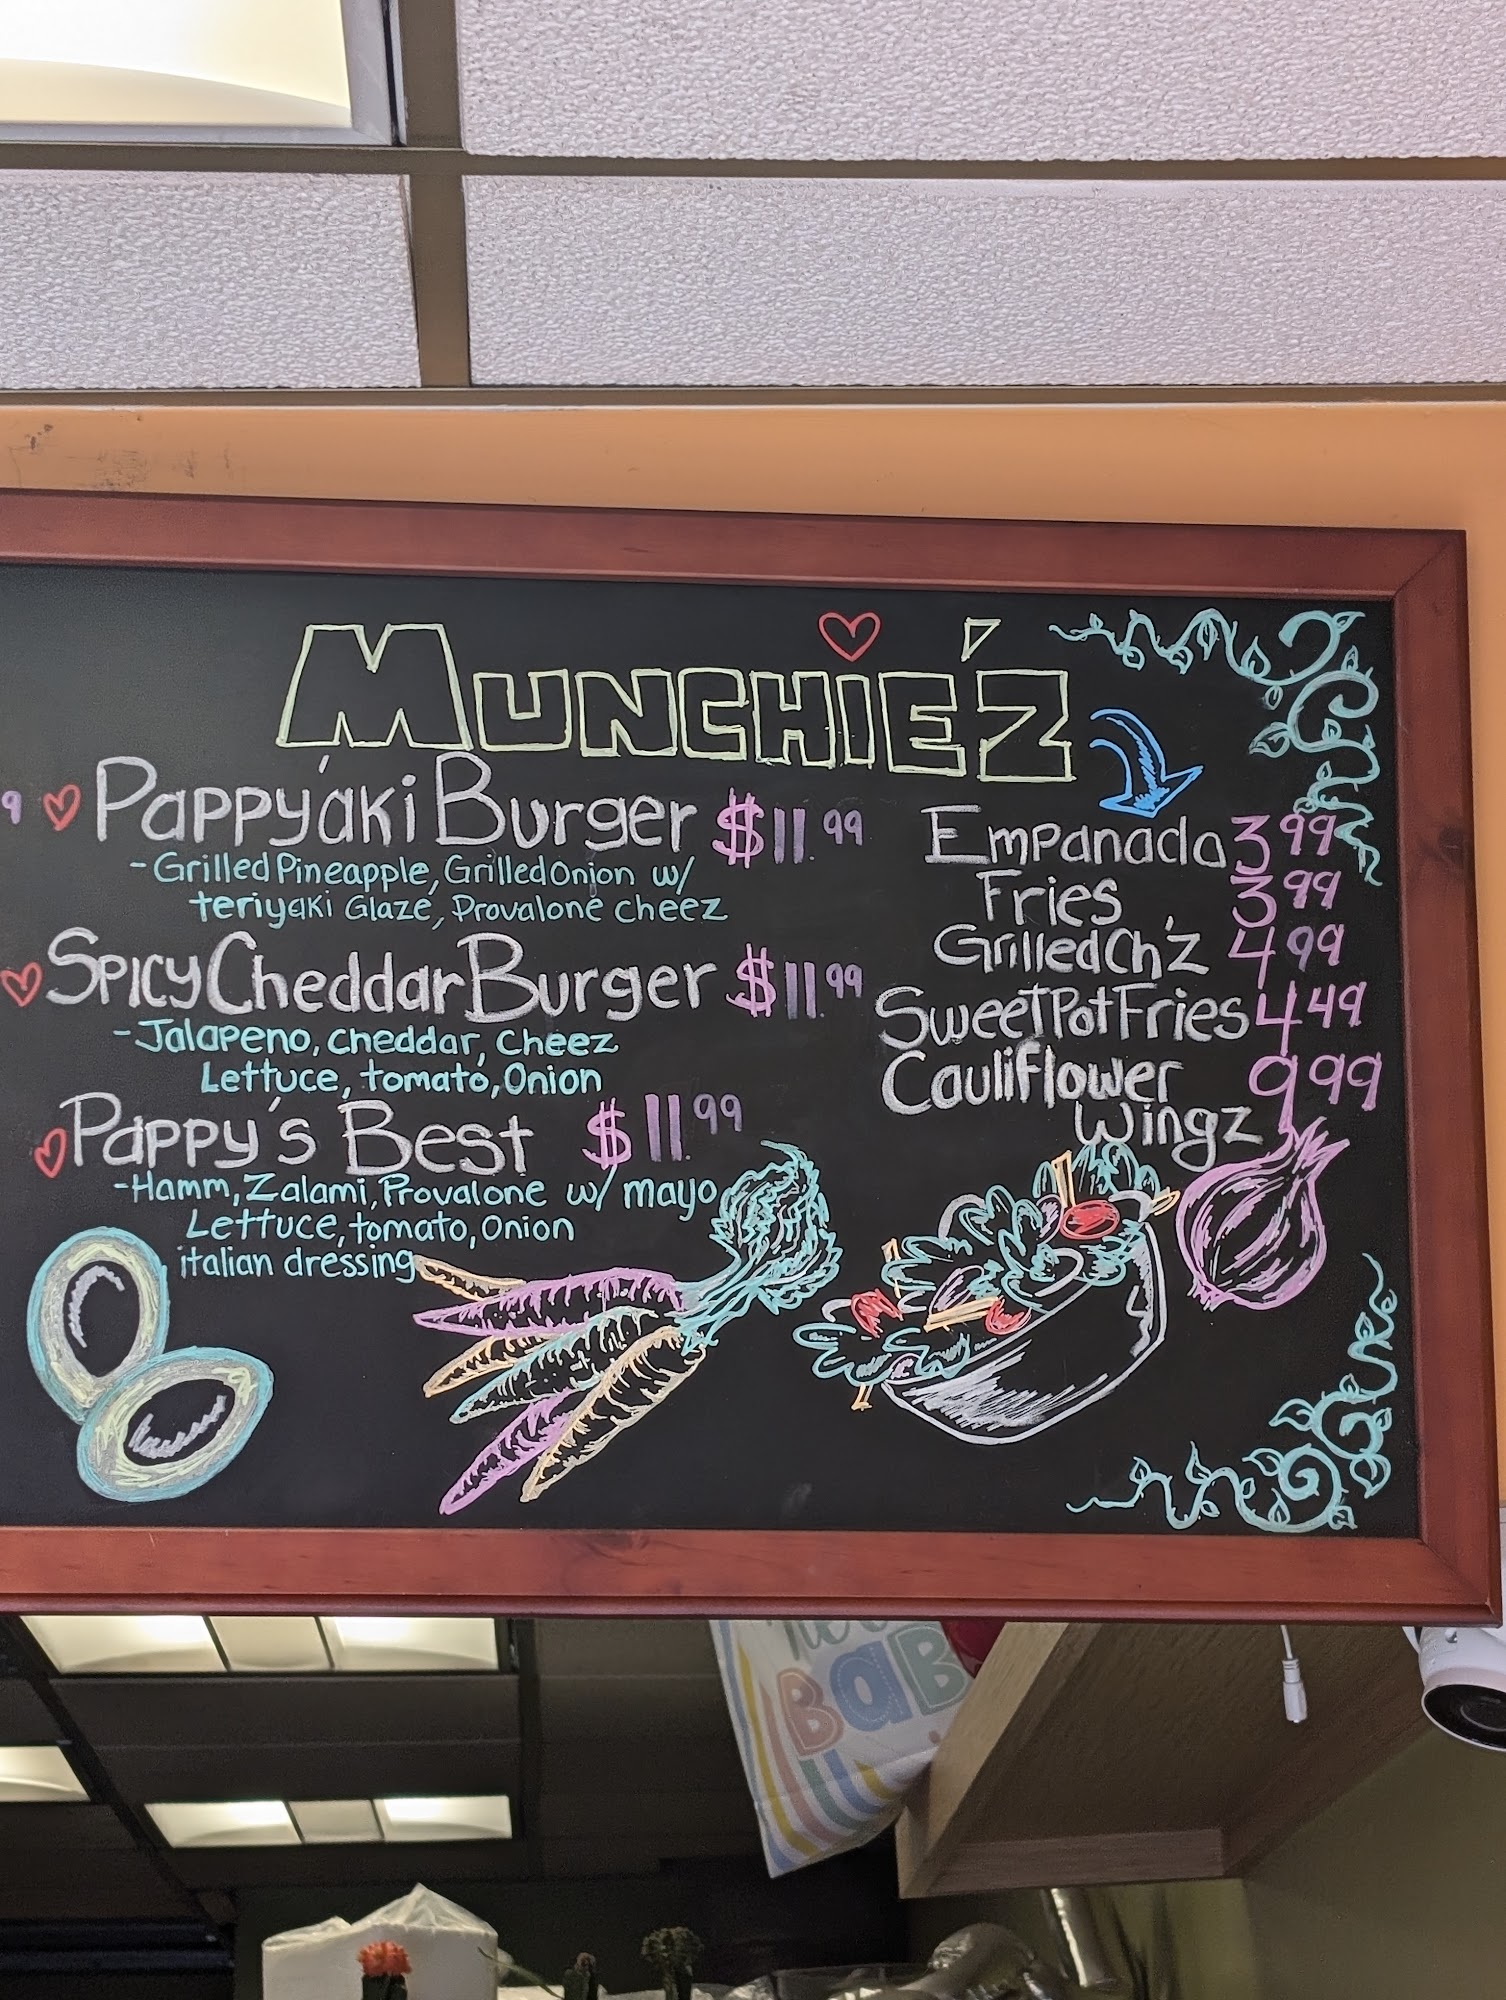 MUNCHIE'Z
9 PAPPY'aki Burger $11.99
-Grilled Pineapple, Grilled Onion w/
teriyaki Glaze, Provalone cheez
Spicy Cheddar Burger $11.99
-Jalapeno, cheddar, cheez
Lettuce, tomato, Onion
Pappy's Best $11.99
-Hamm, Zalami, Provalone w/ mayo
Lettuce, tomato, Onion
italian dressing
Empanada 3 99
Fries 3 99
Grilled Ch'z 4 99
Sweet Pot Fries 4 49
Cauliflower 9 99
Wingz
BaB